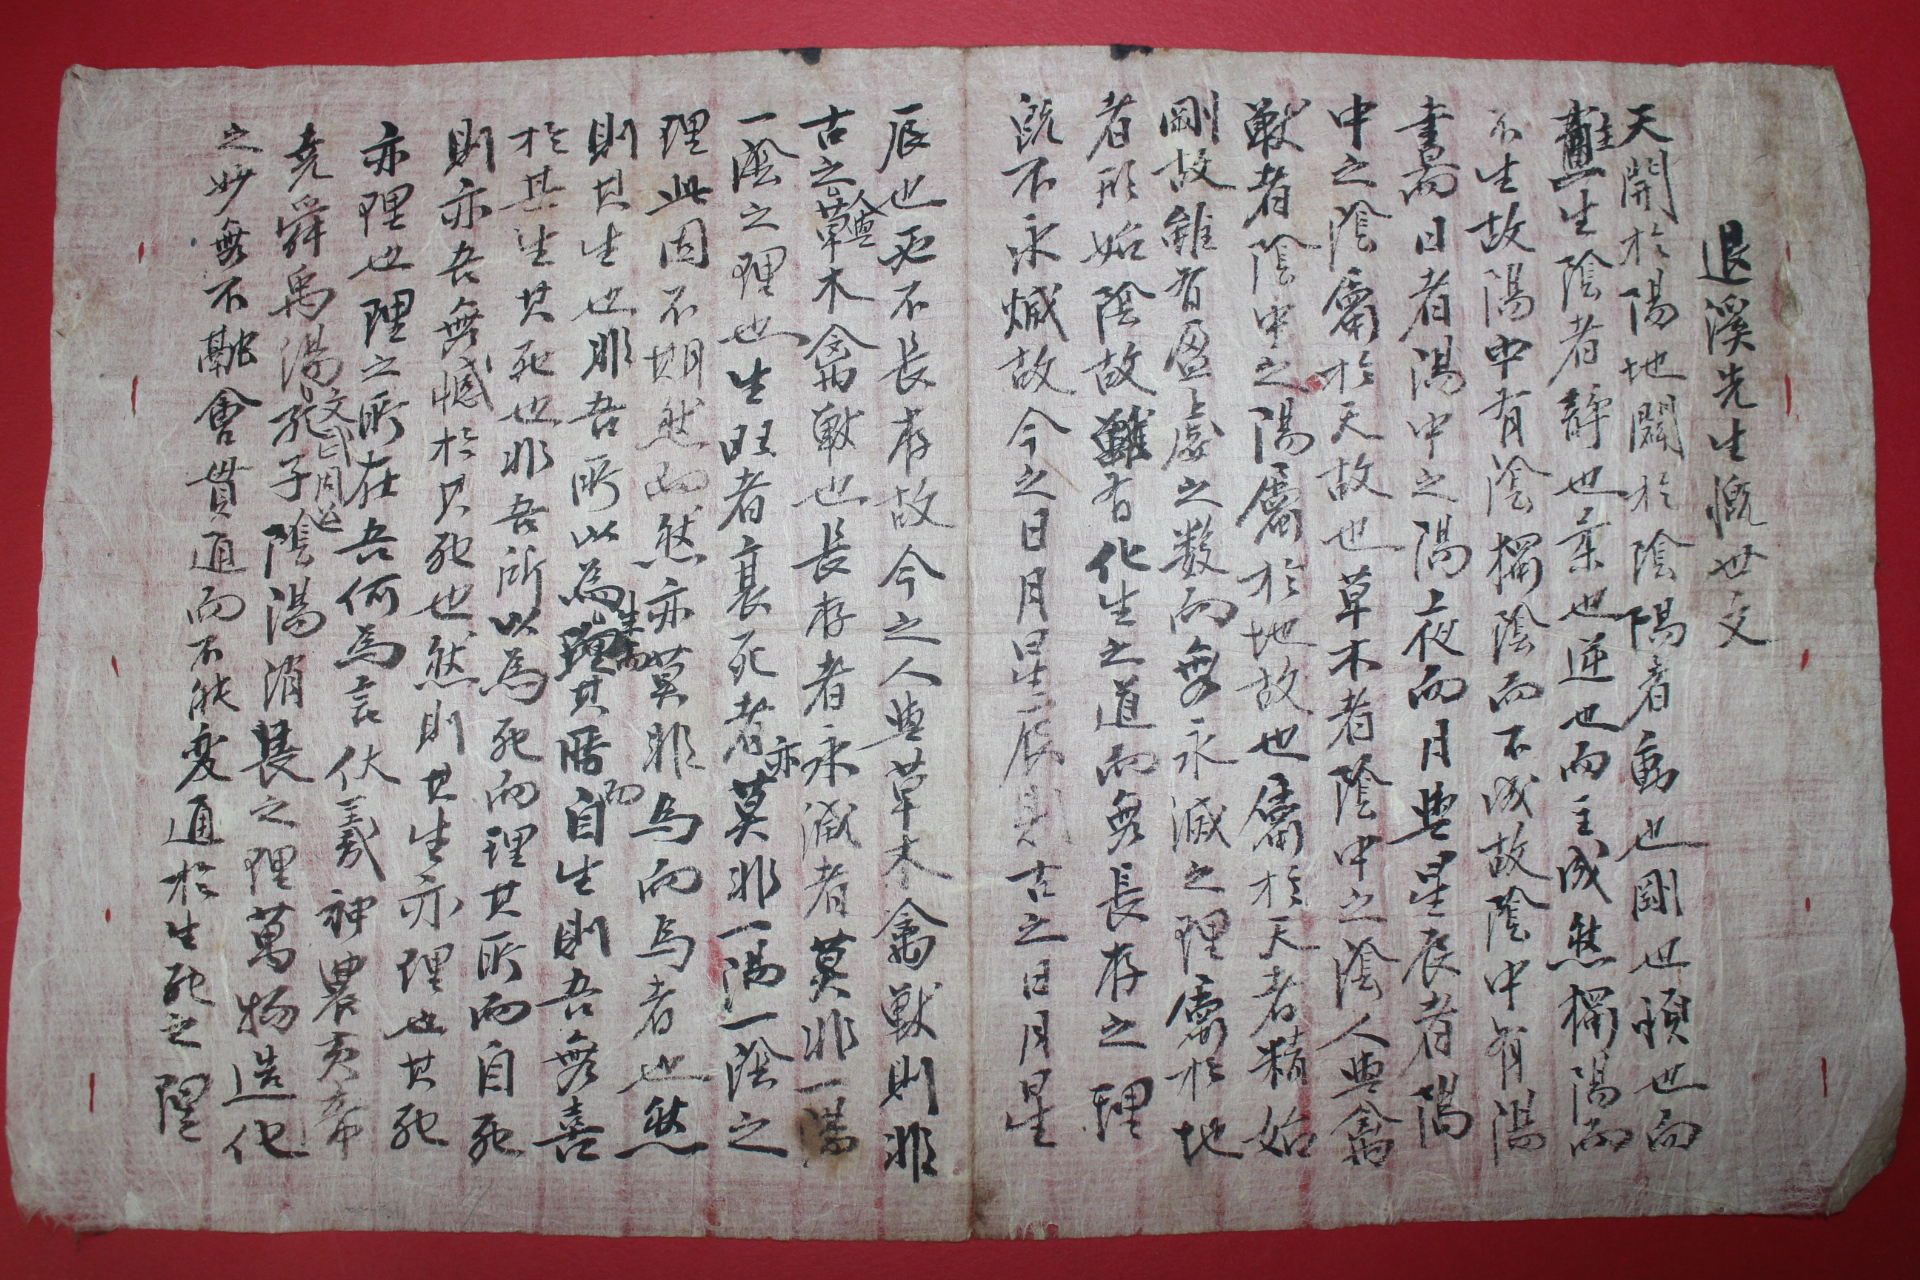 退溪先生慨世文
天開於陽地闢於陰陽者動也剛也順也而
主生陰者靜也柔也逆也而主成然獨陽而
不生故陽中有陰獨陰而不成故陰中有陽
晝而日者陽中之陽夜而月與星辰者陽
中之陰屬於天故也草木者陰中之陰人與禽
獸者陰中之陽屬於地故也屬於天者精始
剛故雖有盈虛之數而無永滅之理屬於地
者形始陰故雖有化生之道而無長存之理
既不永滅故今之日月星辰則古之日月星
辰也更不長存故今之人與草木禽獸則非
古之人與草木禽獸也長存者永滅者莫非一陽
一陰之理也生旺者衰死者亦莫非一陽一陰之
理此固不期然而然亦莫非為而為者也然
則其生也非吾所以為生而理其所而自生則吾無喜
於其生其死也非吾所以為死而理其所而自死
則亦吾無憾於其死也然則其生亦理也其死
亦理也理之所在吾何為言伏羲神農黃帝
堯舜禹湯文武周公孔子陰陽消長之理萬物造化
之妙無不融會貫通而不能變通於生死之理